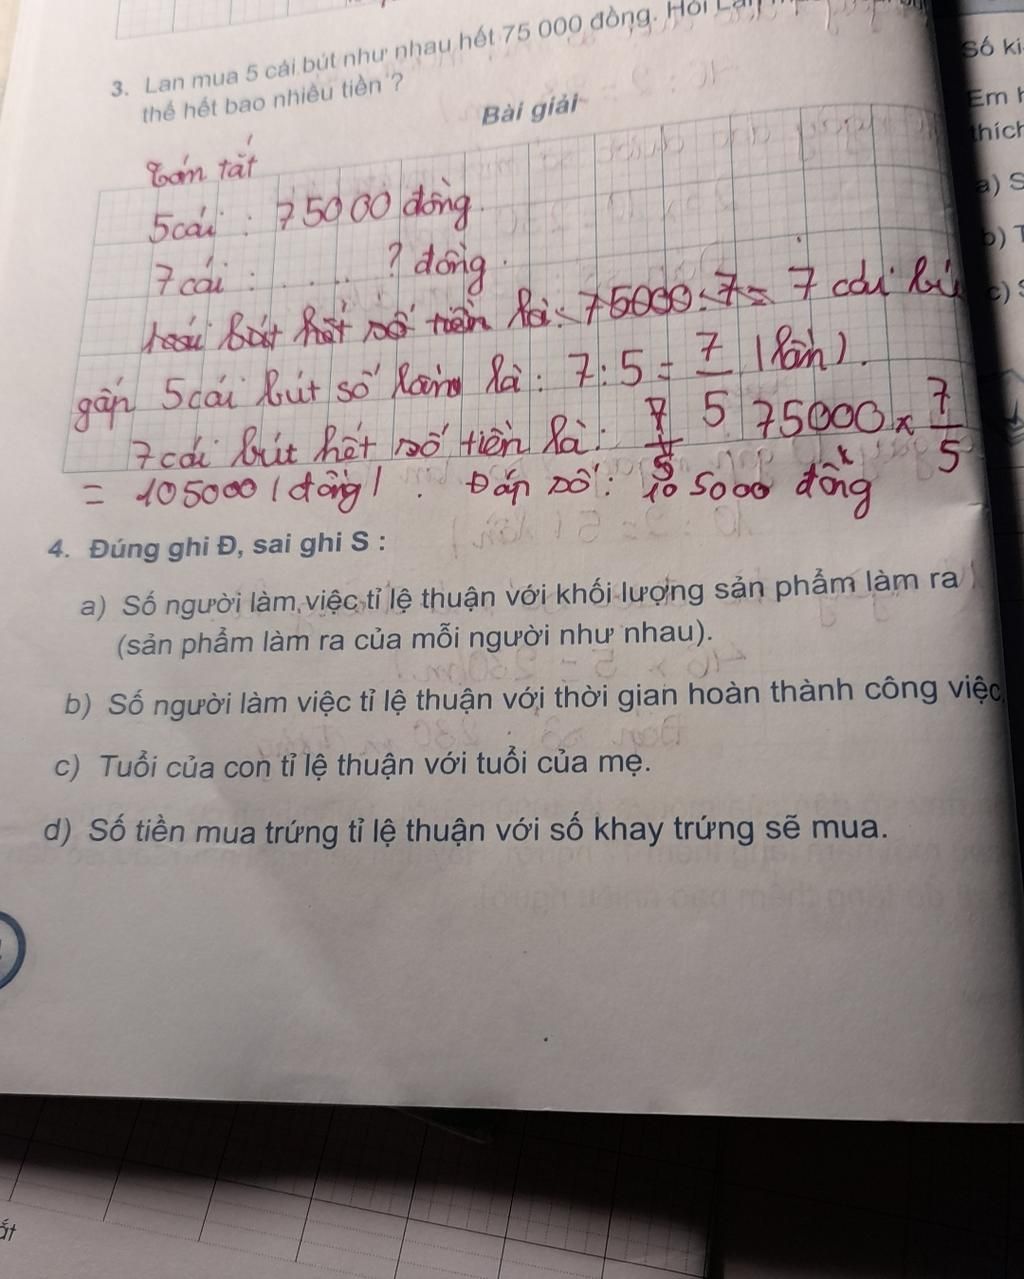 3. Lan mua 5 cái bút như nhau hết 75 000 đồng. Hỏi
thế hết bao nhiêu tiền ?
Bài giải
Tóm tắt
5 cái : 75000 đồng
7 cái : ..... ? đồng
bút hết số tiền là: 75000:7= 7 cái
gấp 5 cái bút số lần là : 7:5 = 7/5 (lần).
7 cái bút hết số tiền là: 75000 x 7/5
= 105000 (đồng). Đáp số: 105000 đồng
4. Đúng ghi Đ, sai ghi S :
a) Số người làm việc tỉ lệ thuận với khối lượng sản phẩm làm ra
(sản phẩm làm ra của mỗi người như nhau).
b) Số người làm việc tỉ lệ thuận với thời gian hoàn thành công việc
c) Tuổi của con tỉ lệ thuận với tuổi của mẹ.
d) Số tiền mua trứng tỉ lệ thuận với số khay trứng sẽ mua.
Số ki
Em
thích
a) S
b) T
c) S
ắt